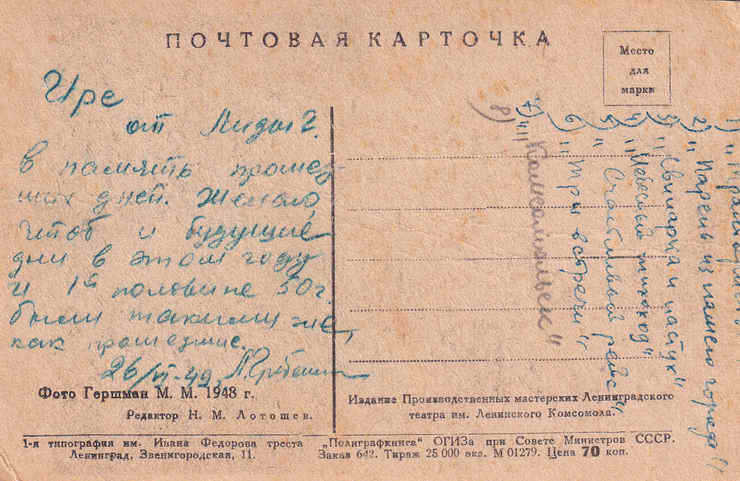 ПОЧТОВАЯ КАРТОЧКА
Место
для
марки
Ире
от Лиды Г.
в память прошед
ших дней. Желаю,
чтоб и будущие
дни в этом году
и 1ой половине 50 г.
были такими же,
как прошедшие.
26/VI-49.
2) "Парень из нашего города"
3) "Свинарка и пастух"
4) "Небесный тихоход"
5) "Счастливый рейс"
6) "Три встречи"
7) "
8) "Комсомольск"
Фото Гершман М. М. 1948 г.
Редактор Н. М. Лотошев.
Издание Производственных мастерских Ленинградского
театра им. Ленинского Комсомола.
1-я типография им. Ивана Федорова треста „Полиграфкнига" ОГИЗа при Совете Министров СССР.
Ленинград, Звенигородская, 11. Заказ 642. Тираж 25 000 экз. М 01279. Цена 70 коп.